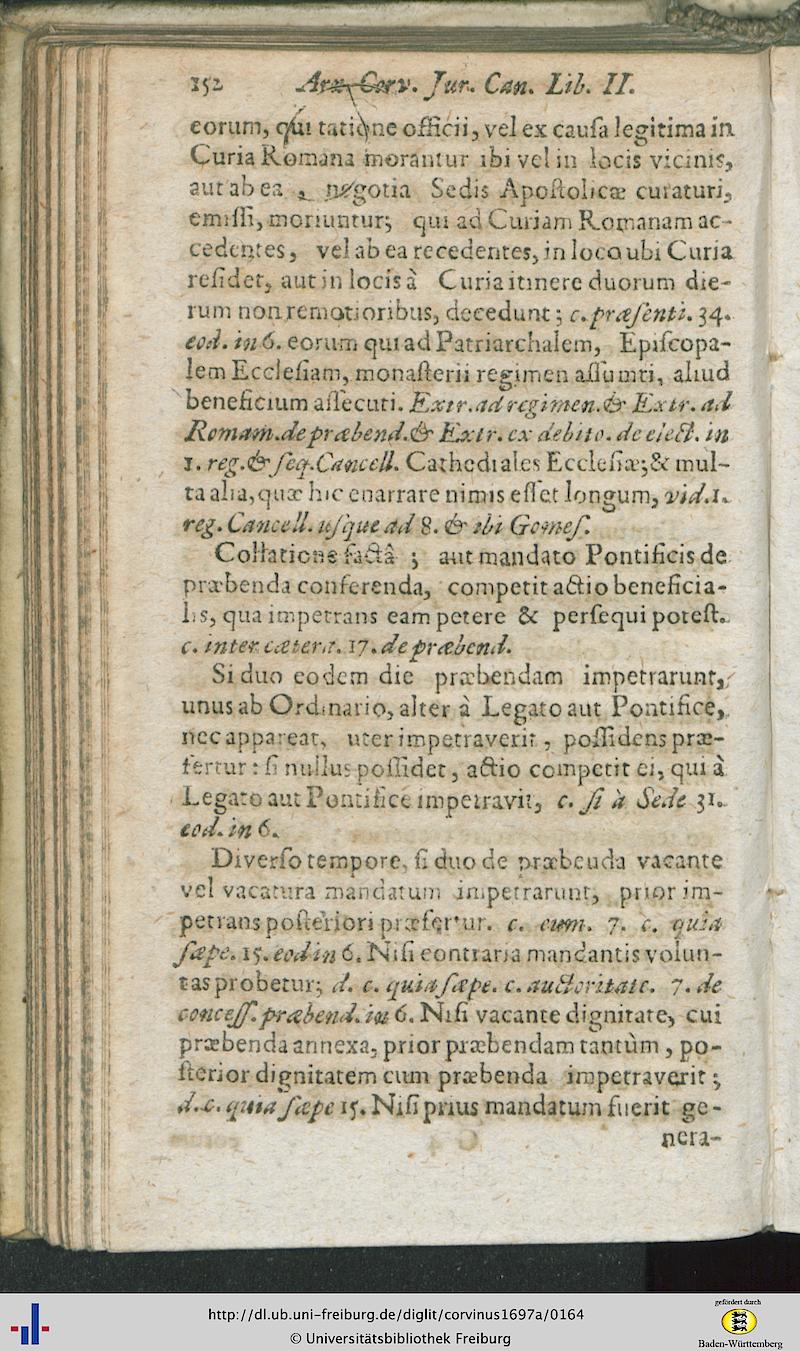 152 Aræ Corv. Jur. Can. Lib. II.
eorum, qui ratione officii, vel ex cauſa legitima in
Curia Romana morantur ibi vel in locis vicinis,
aut ab ea, negotia Sedis Apoſtolicæ curaturi,
emiſſi, moriuntur; qui ad Curiam Romanam ac-
cedentes, vel ab ea recedentes, in loco ubi Curia
reſidet, aut in locis à Curia itinere duorum die-
rum non remotioribus, decedunt; c. præſenti. 34.
eod. in 6. eorum qui ad Patriarchalem, Epiſcopa-
lem Eccleſiam, monaſterii regimen aſſumti, aliud
beneficium aſſecuti. Extr. ad regimen. & Extr. ad
Romam. de præbend. & Extr. ex debito. de elect. in
1. reg. & ſeq. Cancell. Cathedrales Eccleſiæ; & mul-
ta alia, quæ hic enarrare nimis eſſet longum, vid. 1.
reg. Cancell. uſque ad 8. & ibi Gomeſ.
Collatione factâ; aut mandato Pontificis de
præbenda conferenda, competit actio beneficia-
lis, qua impetrans eam petere & perſequi poteſt.
c. inter cætera. 17. de præbend.
Si duo eodem die præbendam impetrarunt,
unus ab Ordinario, alter à Legato aut Pontifice,
nec appareat, uter impetraverit, poſſidens præ-
fertur: ſi nullus poſſidet, actio competit ei, qui à
Legato aut Pontifice impetravit, c. ſi à Sede 31.
eod. in 6.
Diverſo tempore, ſi duo de præbeuda vacante
vel vacatura mandatum impetrarunt, prior im-
petrans poſteriori præfertur. c. cum. 7. c. quia
ſæpe. 15. eod in 6. Niſi contraria mandantis volun-
tas probetur; d. c. quia ſæpe. c. auctoritate. 7. de
conceſſ. præbend. in 6. Niſi vacante dignitate, cui
præbenda annexa, prior præbendam tantùm, po-
ſterior dignitatem cum præbenda impetraverit;
d. c. quia ſæpe 15. Niſi prius mandatum fuerit ge-
nera-
http://dl.ub.uni-freiburg.de/diglit/corvinus1697a/0164
© Universitätsbibliothek Freiburg
gefördert durch
Baden-Württemberg